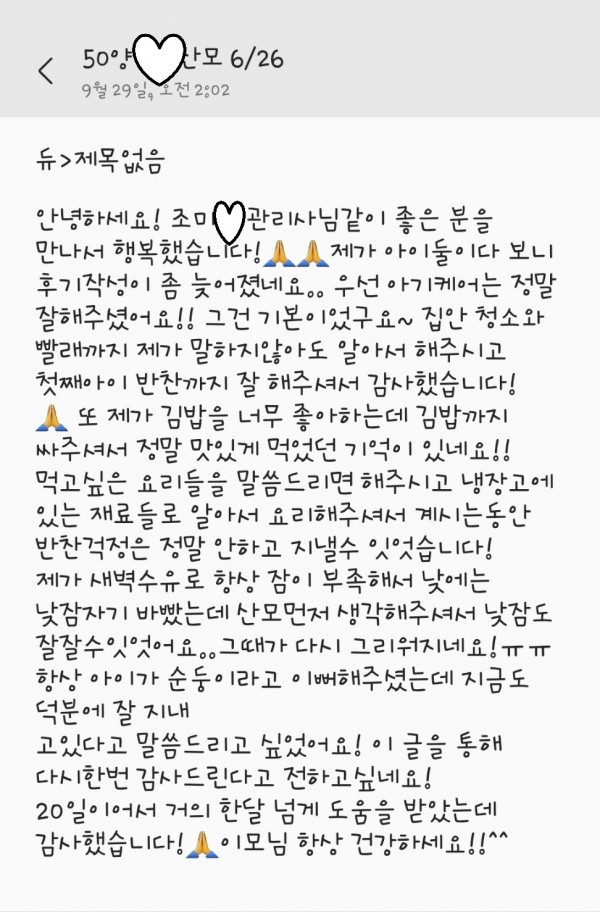 50양 산모 6/26
9월 29일, 오전 2:02
듀>제목없음
안녕하세요! 조미 관리사님같이 좋은 분을
만나서 행복했습니다!🙏🙏제가 아이둘이다 보니
후기작성이 좀 늦어졌네요.. 우선 아기케어는 정말
잘해주셨어요!! 그건 기본이었구요~ 집안 청소와
빨래까지 제가 말하지않아도 알아서 해주시고
첫째아이 반찬까지 잘 해주셔서 감사했습니다!
🙏 또 제가 김밥을 너무 좋아하는데 김밥까지
싸주셔서 정말 맛있게 먹었던 기억이 있네요!!
먹고싶은 요리들을 말씀드리면 해주시고 냉장고에
있는 재료들로 알아서 요리해주셔서 계시는동안
반찬걱정은 정말 안하고 지낼수 잇엇습니다!
제가 새벽수유로 항상 잠이 부족해서 낮에는
낮잠자기 바빴는데 산모먼저 생각해주셔서 낮잠도
잘잘수잇엇어요..그때가 다시 그리워지네요!ㅠㅠ
항상 아이가 순둥이라고 이뻐해주셨는데 지금도
덕분에 잘 지내
고있다고 말씀드리고 싶었어요! 이 글을 통해
다시한번 감사드린다고 전하고싶네요!
20일이어서 거의 한달 넘게 도움을 받았는데
감사했습니다!🙏이모님 항상 건강하세요!!^^